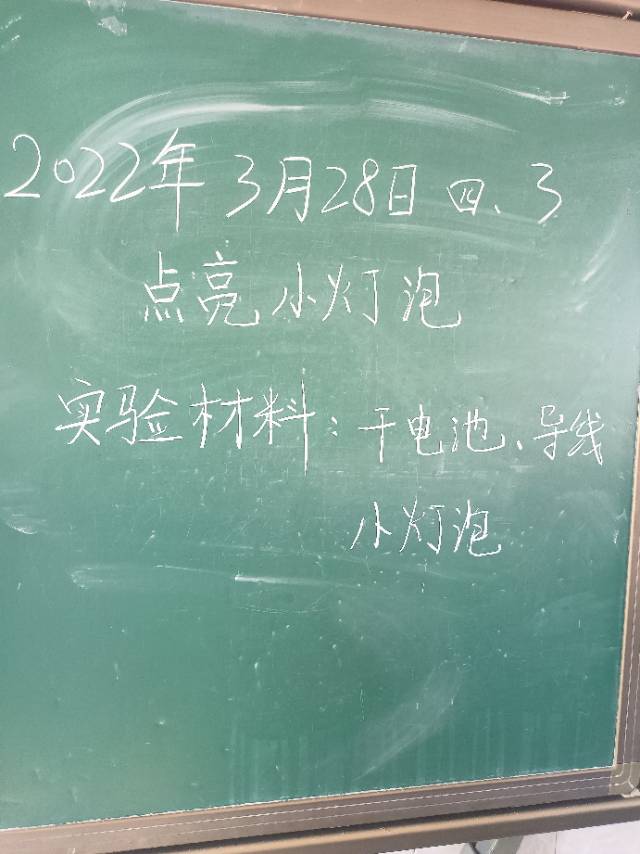 2022年3月28日 四、3
点亮小灯泡
实验材料：干电池、导线
小灯泡